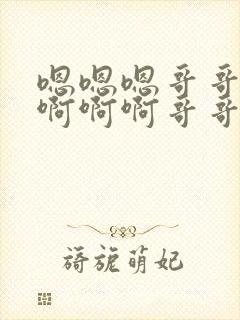 嗯嗯嗯哥哥
啊啊啊哥哥
旖旎萌妃